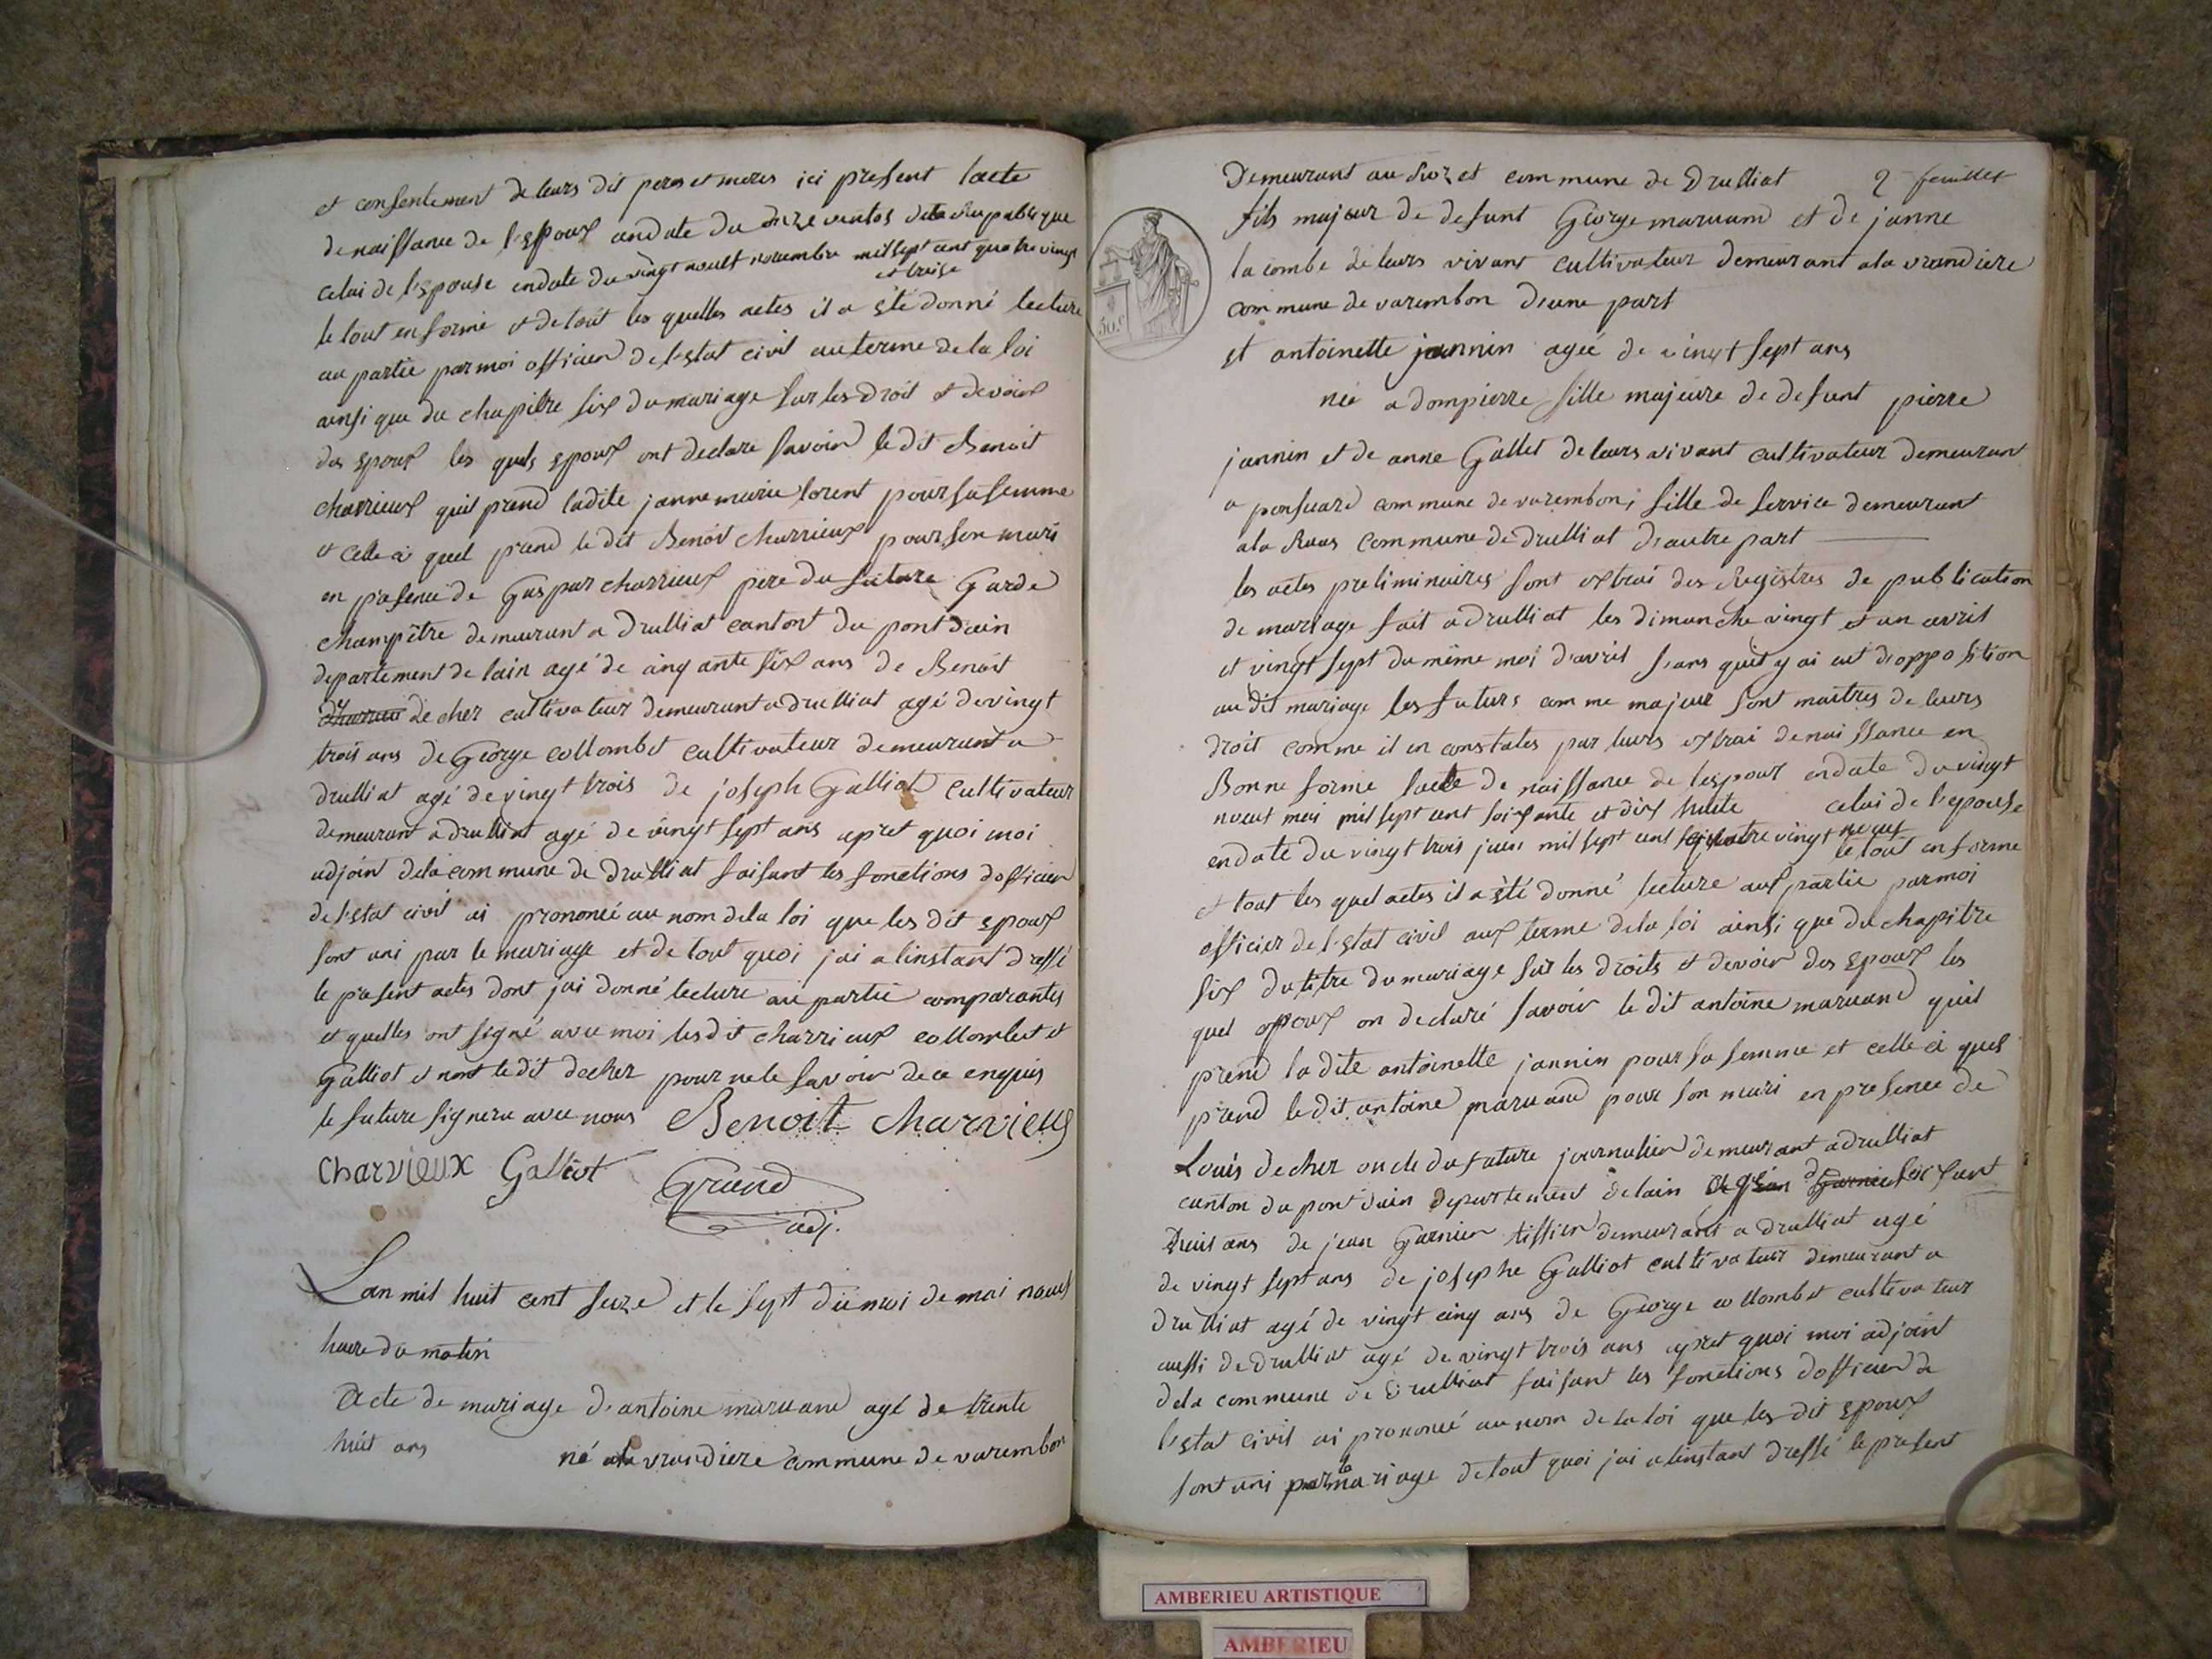 et consentement de leurs dit peres et meres ici present lacte
de naissance de l'espoux en date du onze ventos dela Republique
celui de l'espouse en date du vingt noult novembre mil sept cent quatre vingt
et treise
le tout en forme et de tout les quelles actes il a été donné lecture
au partie par moi officier de l'estat civil au terme de la loi
ainsi que du chapitre six du mariage sur les droit et devoir
des epoux les quels epoux ont declare savoir le dit Benoit
charrieux quil prend ladite janne marie lorent pour sa femme
et celle ci quel prend le dit Benoit charrieux pour son mari
en présence de Gaspar charrieux père du future Garde
champêtre demeurant a Drulliat cantont du pont d'ain
departement de lain agé de cinq ante six ans de Benoit
de cher cultivateur demeurant a drulliat agé de vingt
trois ans de George collombet cultivateur demeurant a
drulliat agé de vingt trois de joseph Galliot cultivateur
demeurant a drulliat agé de vingt sept ans apret quoi moi
adjoin dela commune de Drulliat faisant les fonctions dofficier
de l'estat civil ai prononcé au nom dela loi que les dit epoux
sont uni par le mariage et de tout quoi jai a linstant dressé
le présent actes dont jai donné lecture au partie comparantes
et quelles ont signé avec moi les dit charrieux collombet et
Galliot et nont le dit decher pour ne le savoir de ce enquis
le future signera avec nous Benoit charvieux
Charvieux Galliot Grand
adj.
Lan mil huit cent seize et le sept du moi de mai neuf
heure du matin
Acte de mariage d'antoine maruand agé de trente
huit ans né ala vrandiere commune de varembon
2 feuillet
Demeurant au commune de Drulliat
fils majeur de defunt George maruand et de janne
lacombe de leurs vivant cultivateur demeurant ala vrandiere
commune de varembon d'une part
et antoinette jannin agée de vingt sept ans
née a dompierre fille majeure de defunt pierre
jannin et de anne Gallet de leurs vivant cultivateur demeurant
a ponsuard commune de varembon, fille de service demeurant
ala Ruas commune de drulliat d'autre part
les actes preliminaires sont extrai des Registres de publication
de mariage fait a drulliat les dimanche vingt et un avril
et vingt sept du même moi d'avril sans quil y ai eut d'opposition
au dit mariage les futurs comme majeur sont maitres de leurs
droit comme il en constates par leurs extrai de naissance en
Bonne forme lacte de naissance de lespoux en date du vingt
noeut mai mil sept cent soixante et dix huite celui de l'epouse
en date du vingt trois juin mil sept cent quatre vingt neuf
le tout en forme
et tout les quel actes il a été donné lecture aux partie par moi
officier de l'estat civil aux terme dela loi ainsi que du chapitre
six du titre du mariage sur les droits et devoir des epoux les
quel epoux on declaré savoir le dit antoine maruand quil
prend la dite antoinette jannin pour sa femme et celle ci quel
prend le dit antoine maruand pour son mari en presence de
Louis decher oncle du future journalier demeurant a drulliat
canton du pont d'ain departement de lain soixant
huit ans de jean Garnier tissier demeurant a drulliat agé
de vingt sept ans de josephe Galliot cultivateur demeurant a
drulliat agé de vingt cinq ans de George collombet cultivateur
aussi de drulliat agé de vingt trois ans apret quoi moi adjoint
dela commune de Drulliat faisant les fonctions dofficier de
l'estat civil ai prononcé au nom de la loi que les dit epoux
sont uni par la mariage de tout quoi jai a linstant dressé le present
AMBERIEU ARTISTIQUE
AMBERIEU